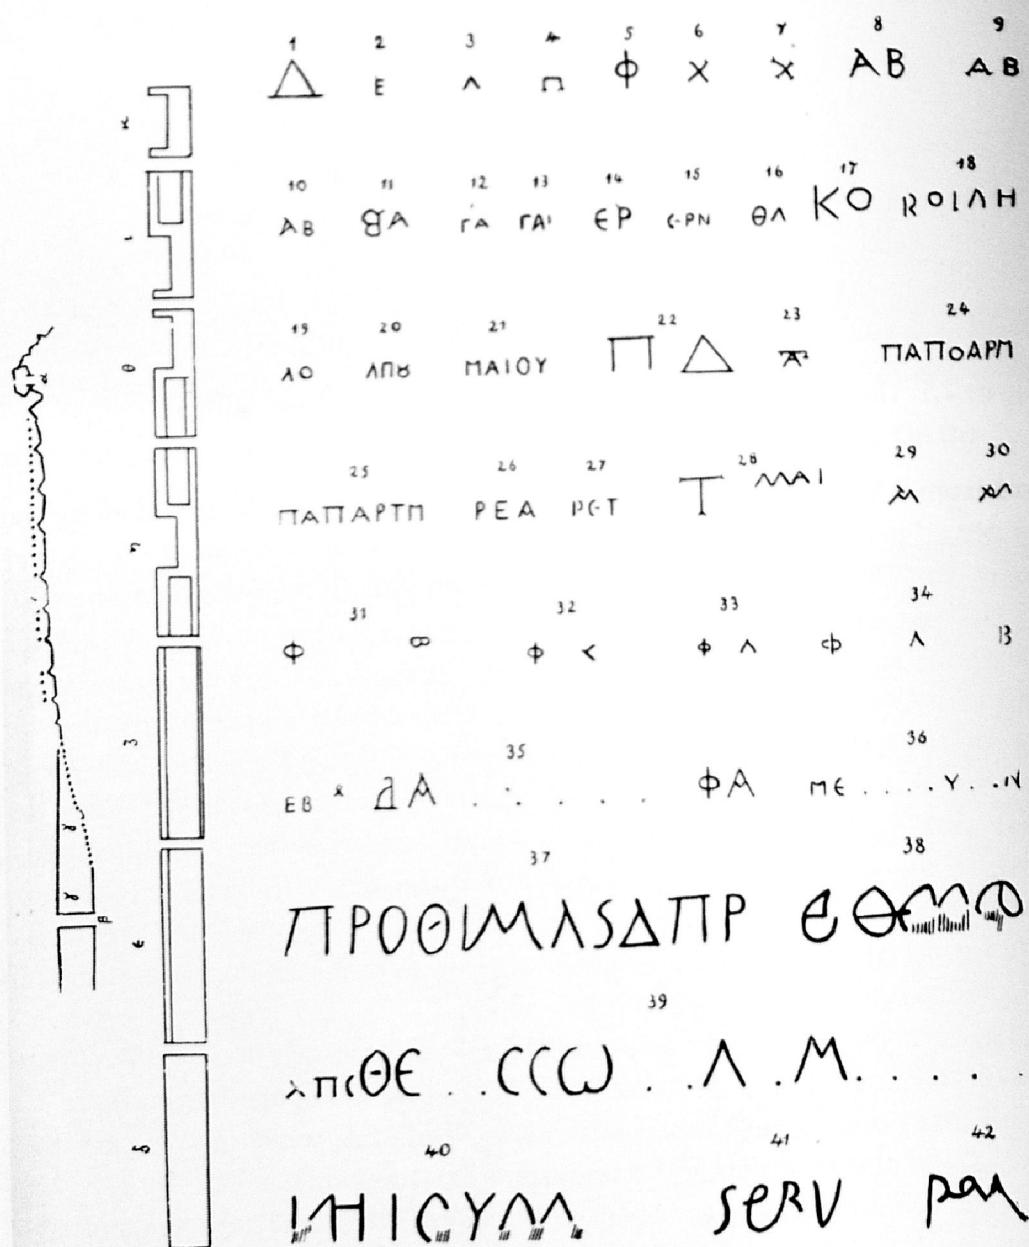 1 2 3 4 5 6 7 8 9
Δ Ε Λ Π Φ Χ Χ ΑΒ ΑΒ
10 11 12 13 14 15 16 17 18
ΑΒ ȣΑ ΓΑ ΓΑΙ ЄΡ ЄΡΝ ΘΛ ΚΟ ΚΟΙΛΗ
19 20 21 22 23 24
ΛΟ ΛΠȣ ΜΑΙΟΥ Π Δ ΠΑΠΟΑΡΠ
25 26 27 28 29 30
ΠΑΠΑΡΤΠ ΡΕΑ ΡЄΤ Τ ΜΑΙ
31 32 33 34
Φ Β Φ < Φ Λ Φ Λ Β
35 36
ΕΒ ΔΑ . . . . . ΦΑ ΜЄ . . . . . Υ . . . Ν
37 38
ΠΡΟΘΙΜΛSΔΠΡ
39
λπιΘЄ . . CCCω . . Λ . Μ . . . . .
40 41 42
ΗΙCΥΜ SeRV
κ
ι
θ
η
ζ
ε
δ
α
γ
γ
β